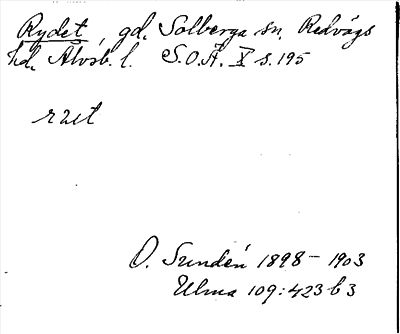 Rydet, gd. Solberga sn. Redvägs
hd. Älvsb. l. S.O.Ä. X s. 195
rzet
O. Sundén 1898–1903
Ulma 109:423 b 3